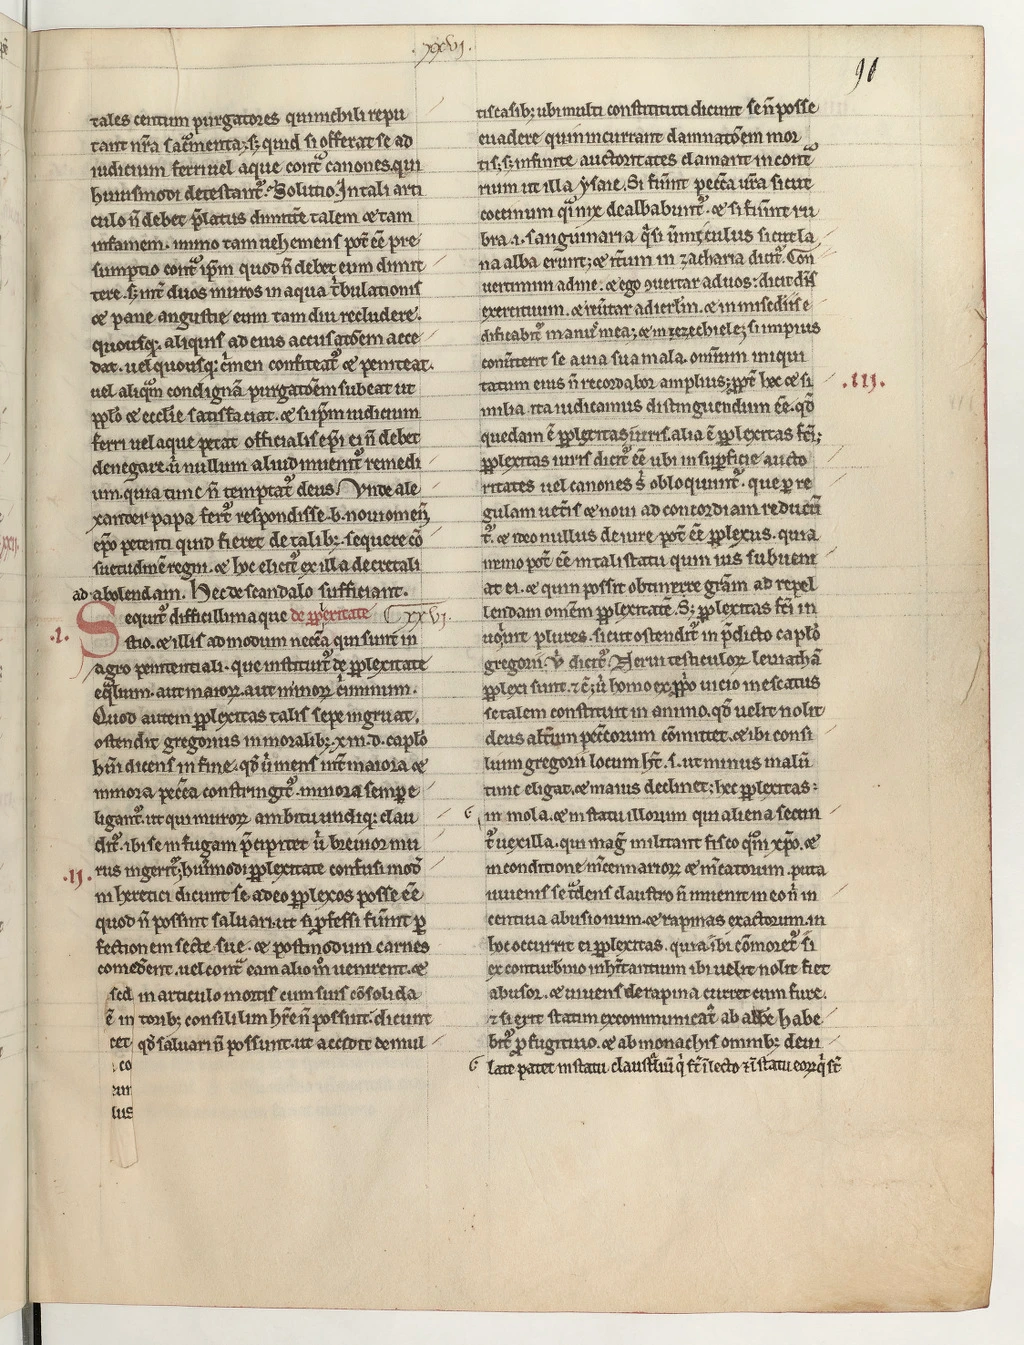 .xxvi.
91
tales centum purgatores qui nichili repu
tant nr̄a sac̄menta; s; quid si offerat se ad
iudicium ferri uel aque cont̄ canones. qui
huiusmodi detestant᷑. Solutio. In tali arti
culo n̄ debet p̄latus dimitte talem ⁊ tam
infamem. immo tam uehemens pot̄ ēē pre
sumptio cont̄ ip̄m quod n̄ debet eum dimit
tere. s; int̄ duos muros in aqua t̄bulationis
⁊ pane angustie eum tam diu recludere.
quousq; aliquis ad eius accusatōem acce
dat. uel quousq; c̄men confiteat᷑ ⁊ peniteat.
uel aliqm̄ condignā purgatōem subeat ut
pp̄lo ⁊ ecclie satisfaciat. ⁊ si ip̄m iudicium
ferri uel aque petat officialis ep̄i ei n̄ debet
denegare. ū nullum aliud inuenit᷑ remedi
um. quia tunc n̄ temptat᷑ deus. Vnde ale
xander papa fert᷑ respondisse .b. nouiomen̄
ep̄o petenti quid fieret de talib; sequere cō
suetudinē regni. ⁊ hoc elicit᷑ ex illa decretali
ad abolendam. Hec de scandalo sufficiant.
.i.
Sequit᷑ difficillima que de pp̄lexitate C xxvi.
stio. ⁊ illis admodum necc̄a qui sunt in
agro penitentiali. que instituit᷑ de pp̄lexitate
eq̄lium. aut maioꝝ. aut minoꝝ c̄iminum.
Quod autem pp̄lexitas talis sepe ingruat.
ostendit gregorius in moralib; .xiii. d. caplō
hui᷑ dicens in fine. qd̄ ū mens int̄ maiora ⁊
minora pecc̄a constringit᷑. minora semp e
ligant᷑. ut qui muroꝝ ambitu undiq; clau
dit᷑. ibi se in fugam p̄cipitet ū breuior mu
.ii.
rus ingerit᷑; hui᷑modi pp̄lexitate confusi mod̄
ni heretici dicunt se adeo pp̄lexos posse ēē
quod n̄ possint saluari. ut si p̄fessi fūint p̄
fectionem secte sue. ⁊ postmodum carnes
comed̄ent. uel cont̄ eam alio m̊ uenirent. ⁊
sed in articulo mortis cum suis cōsolida
ē in torib; consilium hr̄e n̄ possunt. dicunt
cet qd̄ saluari n̄ possunt. ut accidit de mul
co
um
lus
tis casib; ubi multi constitituti dicunt se n̄ posse
euadere quin incurrant damnatōem mor
tis; s; infinite auctoritates clamant in cont̄
rium ut illa ysaie. Si fūint pecc̄a ur̄a sicut
coccinum q̄i nix dealbabunt᷑. ⁊ si fūint ru
bra .i. sanguinaria q̄si ūmiculus sicut la
na alba erunt; ⁊ it̄um in zacharia dicit᷑. Con
uertimini ad me. ⁊ ego ꝯuertar ad uos: dicit dn̄s
exercituum. ⁊ reūtar ad ierlm̄. ⁊ in mis̄edie
dificabit᷑ in manu᷑ mea; ⁊ in iezechiele; si impius
conūterit se a uia sua mala. omnium iniqui
tatum eius n̄ recordabor amplius; ppt̄ hec ⁊ si
.iii.
milia ita iudicamus distinguendum ēē. qd̄
quedam ē pp̄lexitas iuris. alia ē pp̄lexitas fc̄i;
pp̄lexitas iuris dicit᷑ ēē ubi in suꝑficie aucto
ritates uel canones s̄ obloquunt᷑. que ꝑ re
gulam uet̄is ⁊ noui ad concordiam reducū
t᷑. ⁊ ideo nullus de iure pot̄ ēē pp̄lexus. quia
nemo pot̄ ēē in tali statu quin ius subueni
at ei. ⁊ quin possit obtin̄e grām ad repel
lendam omēm pp̄lexitatē. S; pp̄lexitas fc̄i in
uoluit plures. sicut ostendit᷑ in p̄dicto caplō
gregorii. ū dicit᷑. Nerui testiculoꝝ leuiathā
pp̄lexi sunt. ⁊ c̄; ū homo ex pp̄o uicio inescatus
se talem constituit in animo. qd̄ uelit nolit
deus alt̄um pecc̄orum cōmittet. ⁊ ibi consi
lium gregorii locum hr̄t. s. ut minus malū
tunc eligat. ⁊ maius declinet; hec pp̄lexitas:
in mola. ⁊ in statu illorum qui aliena secun
t᷑ uexilla. qui maḡ militant fisco q̄m xp̄o. ⁊
in conditione mc̄ennarioꝝ ⁊ mc̄atorum. puta
iuuenis se t̄dens claustro n̄ inuenit in eo n̄ in
centiua abusionum. ⁊ rapinas exactorum. in
hoc occurrit ei pp̄lexitas. quia ibi cōmoret᷑ si
ex conturbīno inhītantium ibi uelit nolit fiet
abusor. ⁊ uiuens de rapina curret cum fure.
⁊ si exit statim excommunicat̄ ab abbe habe
bit᷑ p̄ fugitiuo. ⁊ ab monachis omnib; dein
late patet in statu claust̄lium q̄ st̄ ī lecto ⁊ ī statu eoꝝ q̄ st̄